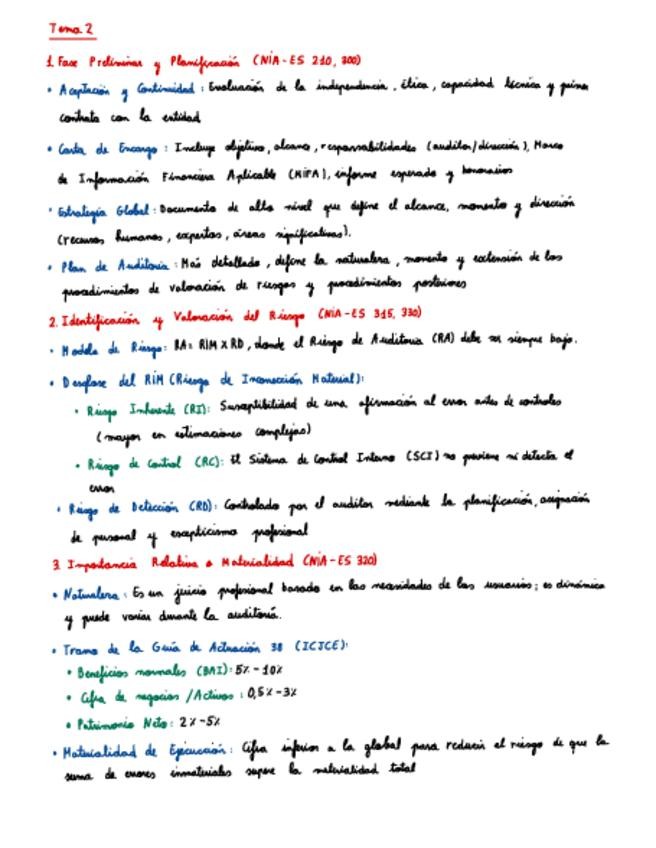 Tema 2
1. Fase Preliminar y Planificación (NIA-ES 210, 300)
• Aceptación y Continuidad: Evaluación de la independencia, ética, capacidad técnica y primer
contrato con la entidad
• Carta de Encargo: Incluye objetivo, alcance, responsabilidades (auditor/dirección), Marco
de Información Financiera Aplicable (MIFA), informe esperado y honorarios
• Estrategia Global: Documento de alto nivel que define el alcance, momento y dirección
(recursos humanos, expertos, áreas significativas).
• Plan de Auditoría: Más detallado, define la naturaleza, momento y extensión de los
procedimientos de valoración de riesgos y procedimientos posteriores
2. Identificación y Valoración del Riesgo (NIA-ES 315, 330)
• Modelo de Riesgo: RA = RIM x RD, donde el Riesgo de Auditoría (RA) debe ser siempre bajo.
• Desglose del RIM (Riesgo de Incorrección Material):
• Riesgo Inherente (RI): Susceptibilidad de una afirmación al error antes de controles
(mayor en estimaciones complejas)
• Riesgo de Control (RC): El Sistema de Control Interno (SCI) no previene ni detecta el
error
• Riesgo de Detección (RD): Controlado por el auditor mediante la planificación, asignación
de personal y escepticismo profesional
3. Importancia Relativa o Materialidad (NIA-ES 320)
• Naturaleza: Es un juicio profesional basado en las necesidades de los usuarios; es dinámica
y puede variar durante la auditoría.
• Tramo de la Guía de Actuación 38 (ICJCE):
• Beneficios normales (BAI): 5% - 10%
• Cifra de negocios / Activos: 0,5% - 3%
• Patrimonio Neto: 2% - 5%
• Materialidad de Ejecución: Cifra inferior a la global para reducir el riesgo de que la
suma de errores inmateriales supere la materialidad total